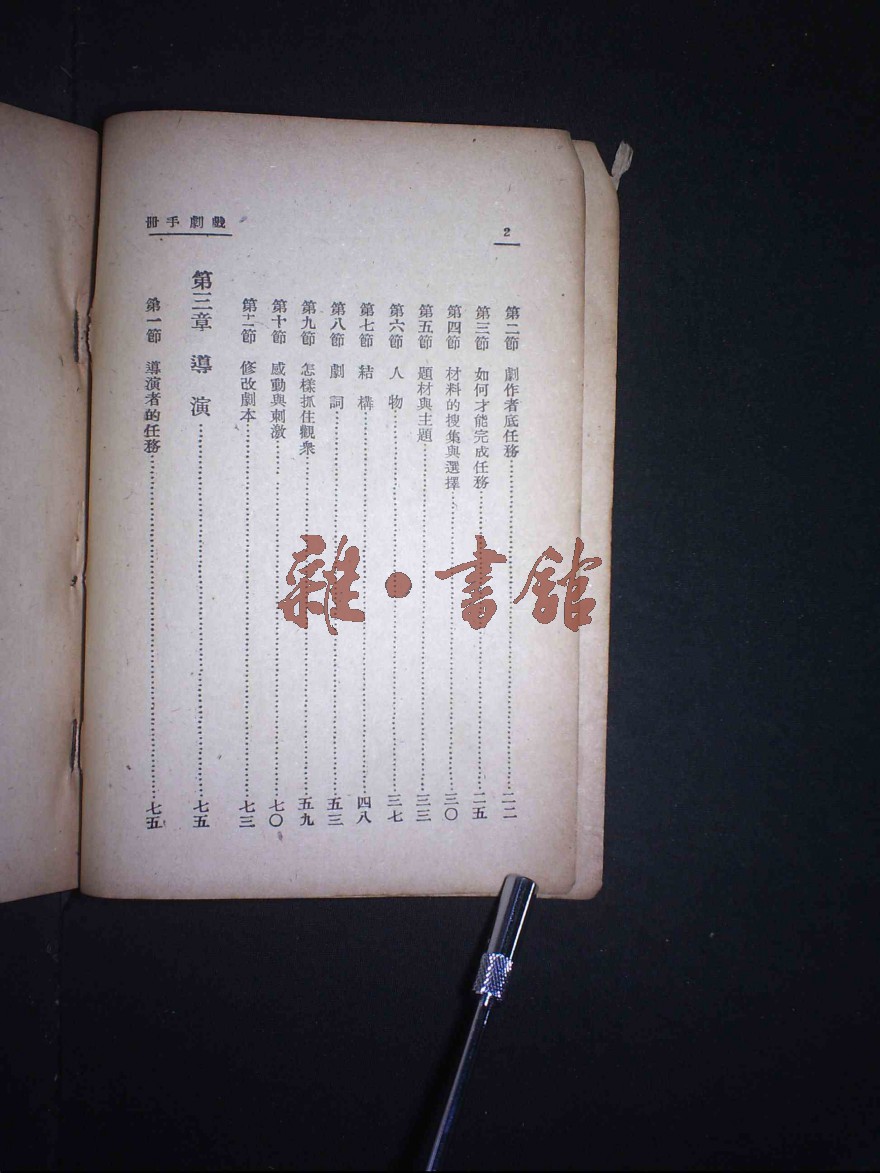 2
戲劇手冊
第二節 劇作者底任務……二二
第三節 如何才能完成任務……二五
第四節 材料的搜集與選擇……三〇
第五節 題材與主題……三三
第六節 人物……三七
第七節 結構……四八
第八節 劇詞……五三
第九節 怎樣抓住觀衆……五九
第十節 感動與刺激……七〇
第十一節 修改劇本……七三
第三章 導演……七五
第一節 導演者的任務……七五
雜·書館